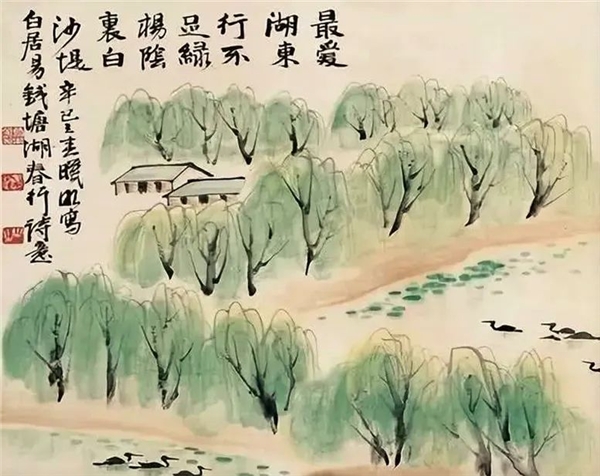 最爱
湖東
行不
足緑
楊陰
裏白
沙堤 辛巳寫
白居易錢塘湖春行詩意